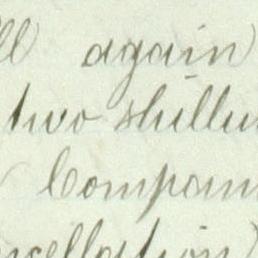 ll again
two shillin
Compan
ncellation